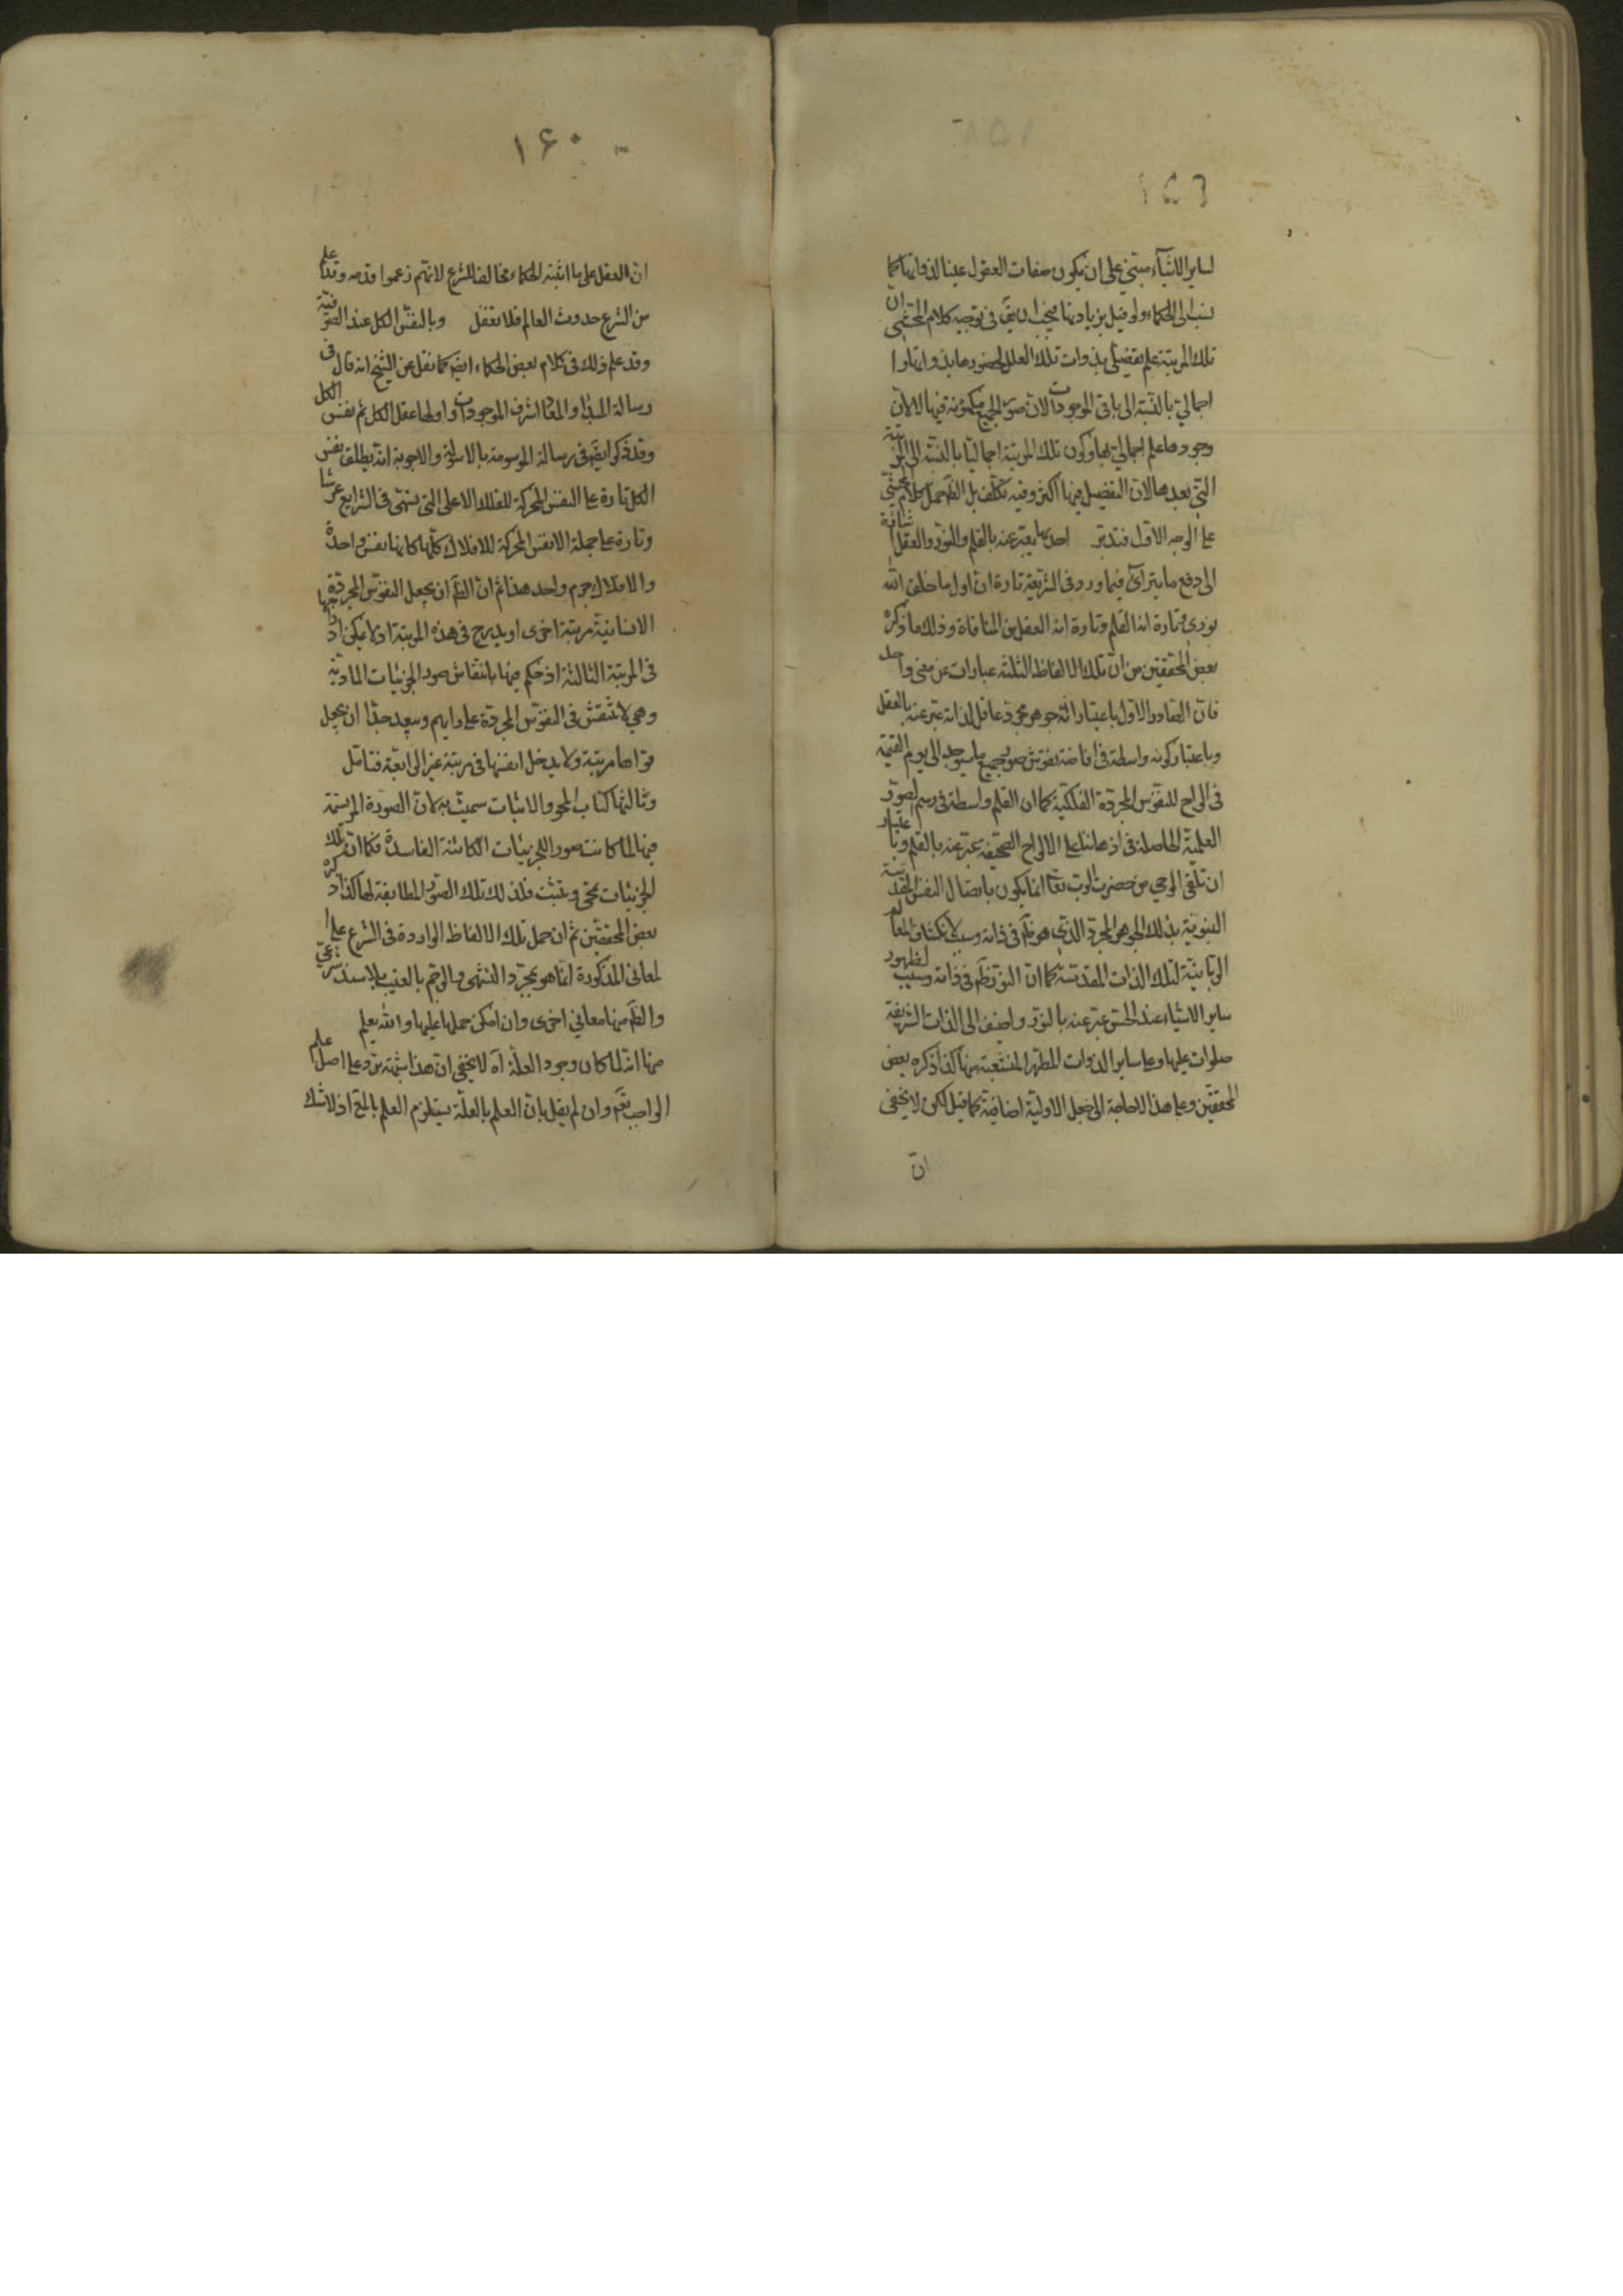 ١٥٩
لساير الاشياء مبتنى على ان يكون صفات العقول عينا لذواتها كما
نسب الى الحكماء ولو قيل بزيادتها فيجب ان يق فى توجيه كلام المحشى ان
تلك المرتبة علم تفصيلى بذوات تلك العلل لحضورها بذواتها و
اجمالي بالنسبة الى باقى الموجودات لان صور الجميع مكمونة فيها لا لان
وجودها علم اجمالي بها وكون تلك المرتبة اجماليا بالنسبة الى المرتبة
التي بعدها لان التفصيل فيها اكثر وفيه تكلف بل الظ حمل كلام المحشى
على الوجه الاول فتدبر احديها يعبر عنه بالقلم والنور والعقل
الى دفع ما يترآى فيما ورد فى الشريعة تارة ان اول ما خلق الله
نورى وتارة انه القلم وتارة انه العقل من المنافاة وذلك ما ذكره
بعض المحققين من ان تلك الالفاظ الثلثة عبارات عن معنى واحد
فان الصادر الاول باعتبار انه جوهر مجرد عاقل لذاته عبر عنه بالعقل
وباعتبار كونه واسطة فى افاضة نقوش صور جميع ما سيوجد الى يوم القيمة
فى الواح للنفوس المجردة الفلكية كما ان القلم واسطة فى رسم الصور
العلمية الحاصلة فى اذهاننا على الالواح الصحيفة عبر عنه بالقلم وباعتبار
ان تلقى الوحي من حضرت الرب تعا انما يكون باتصال النفس القدسية
النبوية بذلك الجوهر المجرد الذي هو نير فى ذاته وسبب لانكشاف المعا
الربانية لتلك الذات المقدسة كما ان النور ظ فى ذاته وسبب لظهور
ساير الاشياء عند الحس عبر عنه بالنور واضيف الى الذات الشريفة
صلوات عليها وعلى ساير الذوات المطهر المنشعبة منها كذا ذكره بعض
المحققين وعلى هذا لا حاجة الى جعل الاولية اضافية كما قيل لكن لا يخفى
ان
١۶٠
ان العقل على ما اثبته الحكماء مخالف للشرع لانهم زعموا قدمه وقد علم
من الشرع حدوث العالم فلا تغفل وبالنفس الكل عند الصوفية
وقد علم ذلك فى كلام بعض الحكماء ايض كما نقل عن الشيخ انه قال فى
رسالة المبداء والمعاد اشرف الموجودات واولها عقل الكل ثم نفس الكل
وقد ذكر ايض فى رسالة الموسومة بالاسولة والاجوبة انه يطلق نفس
الكل تارة على النفس المحركة للفلك الاعلى التى يسمى فى الشرايع عرشا
وتارة على جملة الانفس المحركة للافلاك كلها كانها نفس واحدة
والافلاك جرم واحد هذا ثم ان الظ ان يجعل النفوس المجردة
الانسانية مرتبة اخرى او يدرج فى هذه المرتبة اذ لا يمكن ادراجها
فى المرتبة الثالثة اذ حكم فيها بانتقاش صور الجزئيات المادية
وهي لا تنتقش فى النفوس المجردة على رايهم وبعيد جدا ان يجعل
قواها مرتبة ولا يدخل انفسها فى مرتبة غير الرابعة فتامل
وثالثها كتاب المحو والاثبات سميت به لان الصورة المرتسمة
فيها لما كانت صور الجزئيات الكائنة الفاسدة فكما ان تلك
الجزئيات تمحى وتثبت فلذلك تلك الصور المطابقة لها كذا ذكره
بعض المحققين ثم ان حمل تلك الالفاظ الواردة فى الشرع على
المعانى المذكورة انما هو بمجرد التشهى والرجم بالغيب بلا سند شرعى
والظ منها معاني اخرى وان امكن حملها عليها والله يعلم
منها انه لما كان وجود العلة آه لا يخفى ان هذا شبهة ترد على اصل علم
الواجب تعم وان لم يقل بان العلم بالعلة يستلزم العلم بالمع اذ لا شك